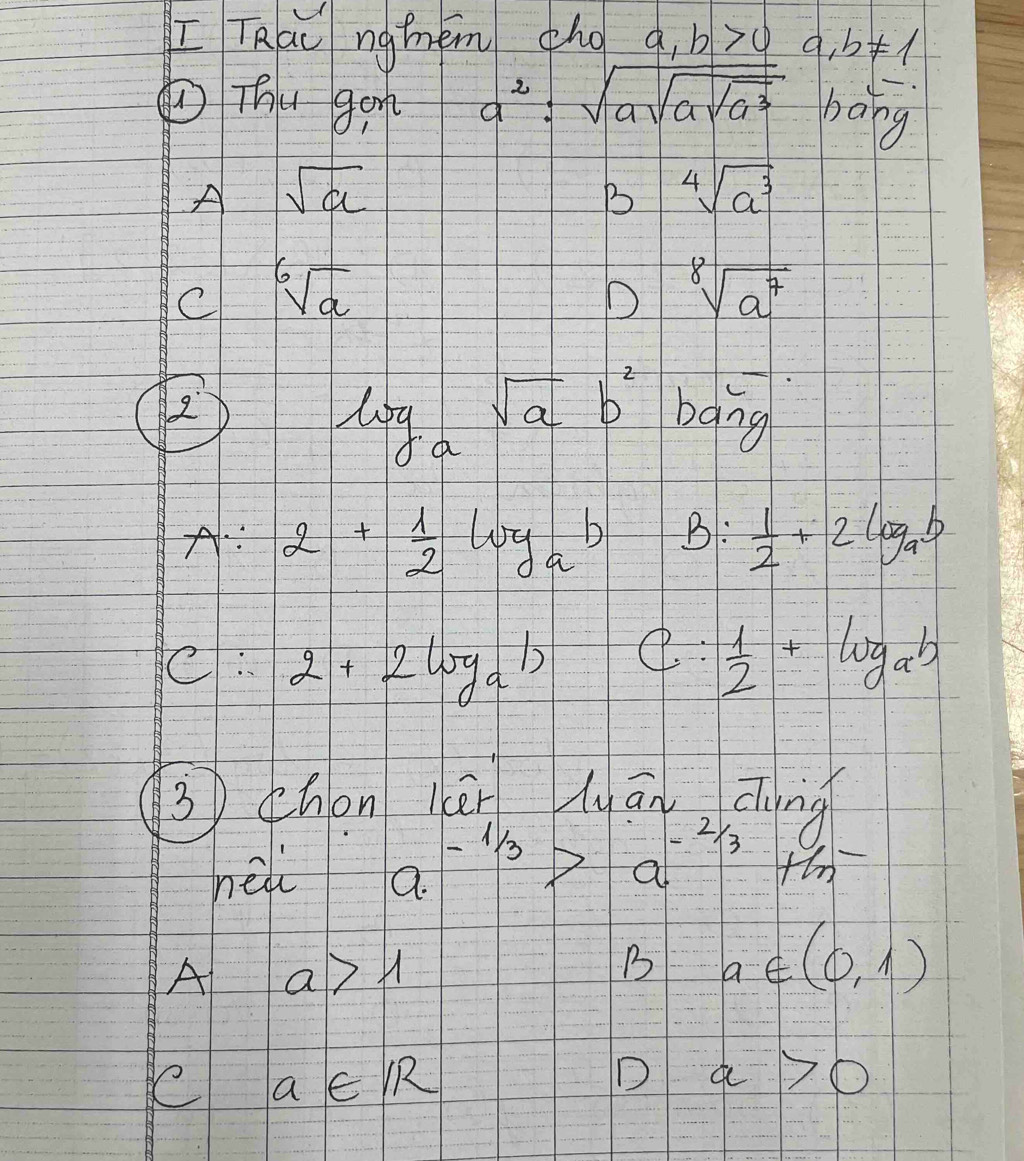 I Trắc nghiệm cho a, b > 0 a, b ≠ 1.
① Thu gọn a² : √(a√(a√(a³))) bằng
A √a B ⁴√(a³)
C ⁶√a D ⁸√(a⁷)
② logₐ √a b² bằng
A : 2 + 1/2 logₐ b B : 1/2 + 2 logₐ b
C : 2 + 2 logₐ b C : 1/2 + logₐ b
③ Chọn kết luận đúng
nếu a^(-1/3) > a^(-2/3) thì
A a > 1 B a ∈ (0, 1)
C a ∈ ℝ D a > 0